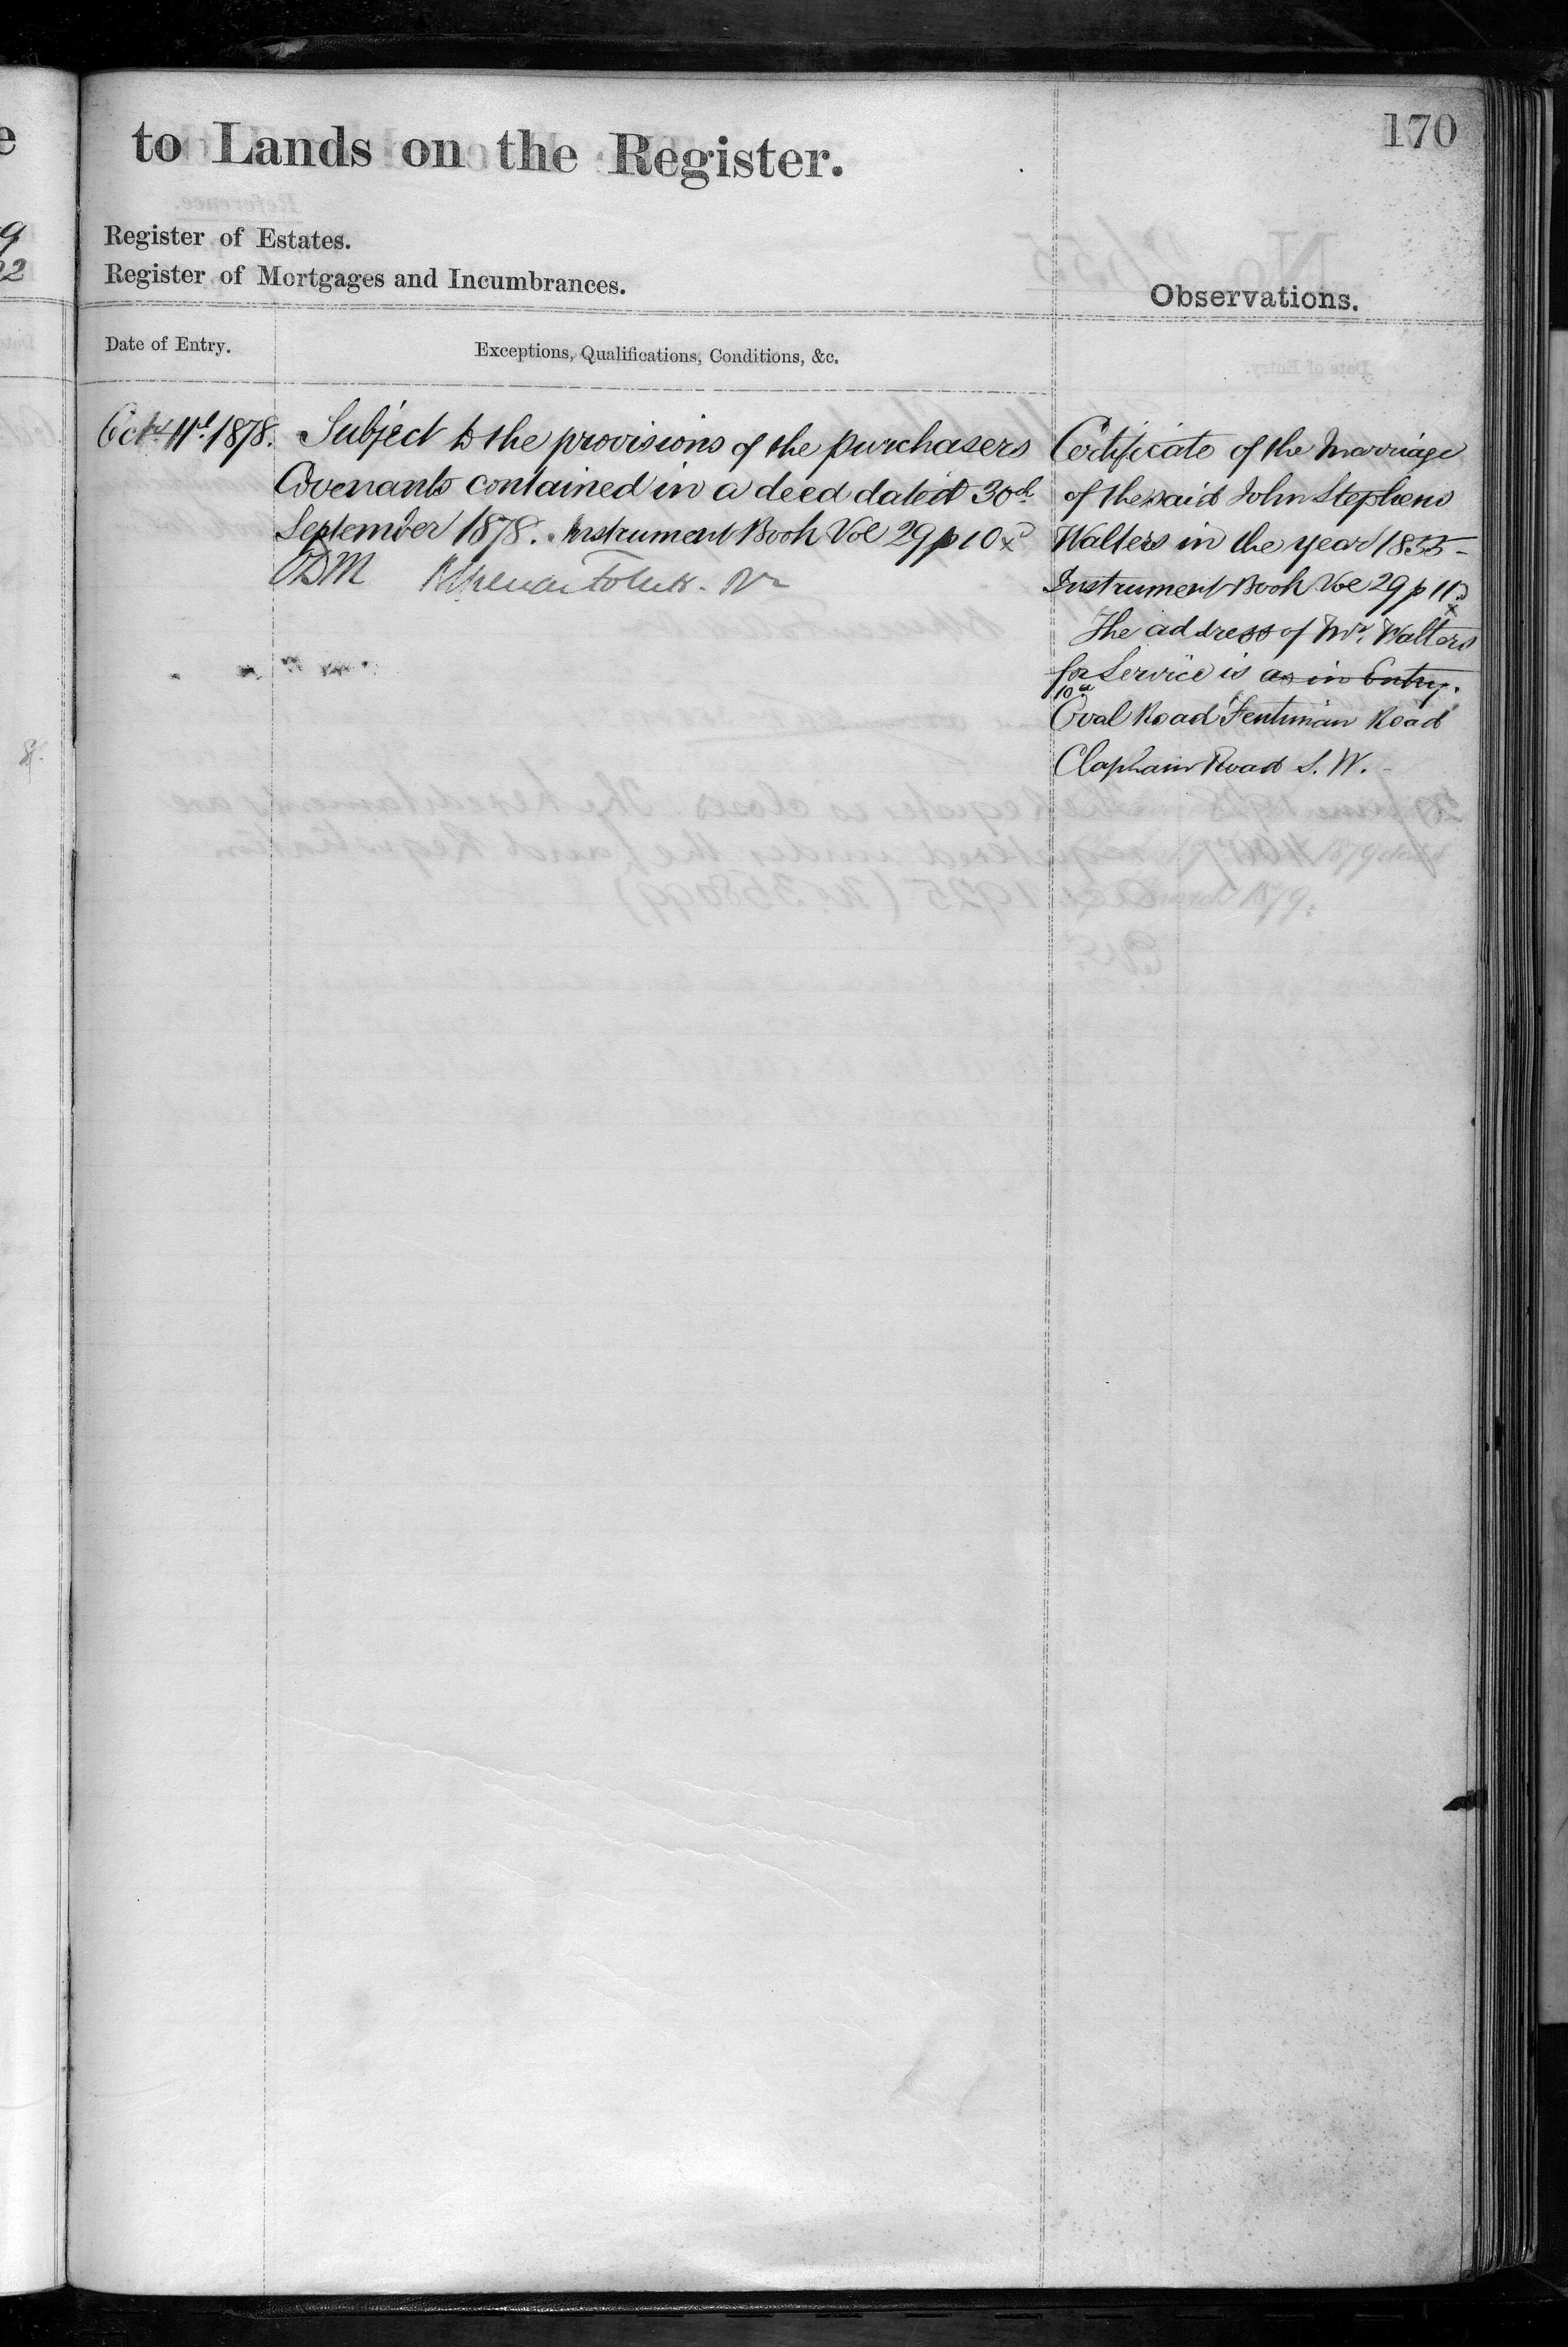 170
to Lands on the Register.
Register of Estates.
Register of Mortgages and Incumbrances.
Observations.
Date of Entry.
Exceptions, Qualifications, Conditions, &c.
Octr 11th 1878.
Subject to the provisions of the purchasers
Covenants contained in a deed dated 30th
September 1878. Instrument Book Vol 29 p 10
Certificate of the Marriage
of the said John Stephens
Walters in the year 1855
Instrument Book Vol 29 p 11
The address of Mr. Walters
for Service is as in Entry.
10a
Oval Road Fentiman Road
Clapham Road S. W.